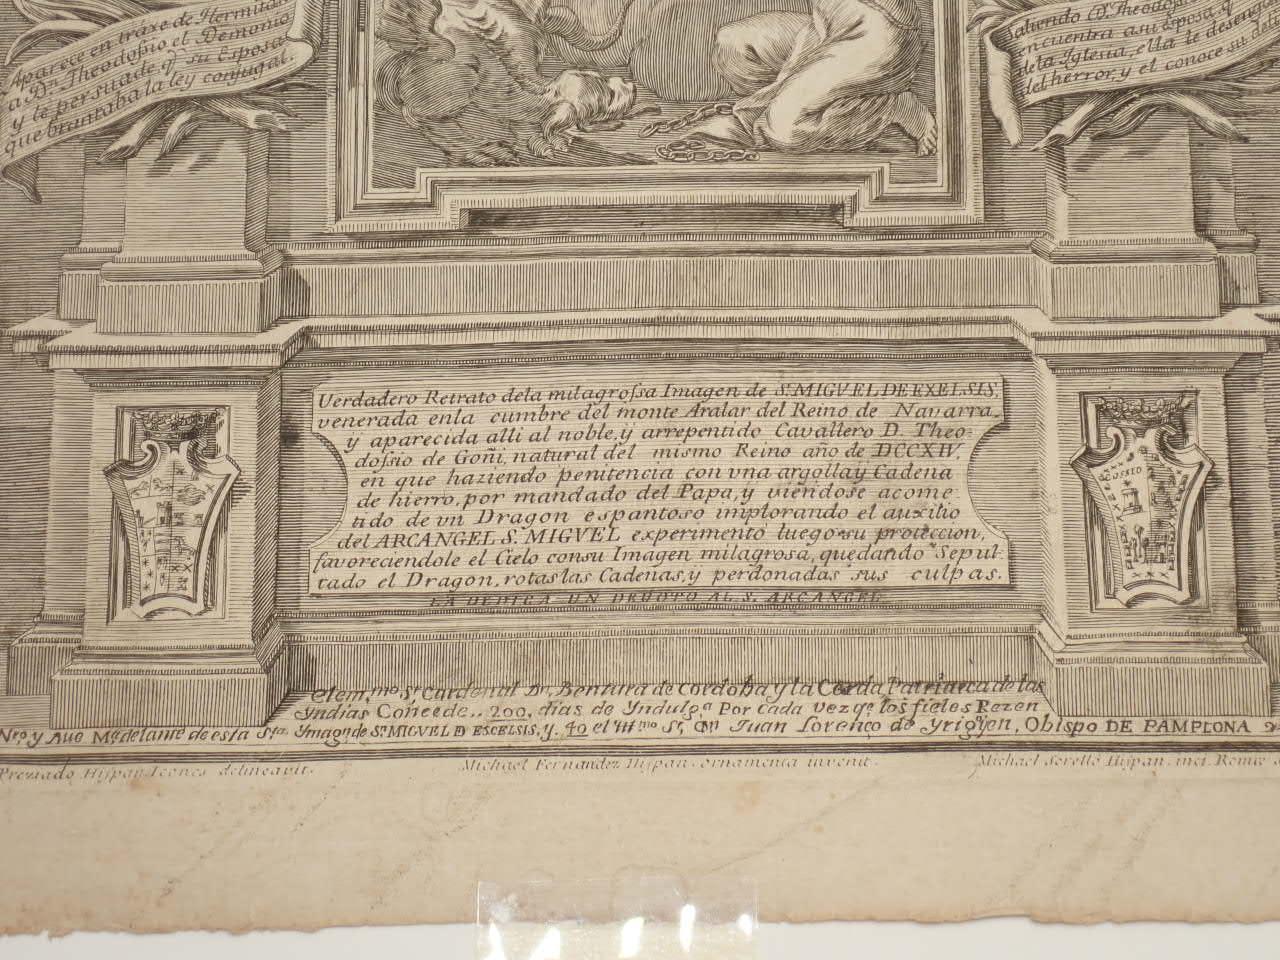 Aparece en traxe de Hermitaño
a Dn. Theodosio el Demonio
y le persuade q. su Esposa
quebrantaba la ley conjugal.
Saliendo D. Theodosio
encuentra a su esposa, y
de la Iglesia, ella le desengaña
del herror, y el conoce su
Verdadero Retrato dela milagrossa Imagen de S. MIGVEL DE EXELSIS,
venerada enla cumbre del monte Aralar del Reino de Navarra,
ÿ aparecida alli al noble, ÿ arrepentido Cavallero D. Theo-
dossio de Goñi, natural del mismo Reino año de DCCXIV.
en que haziendo penitencia con vna argolla ÿ Cadena
de hierro, por mandado del Papa, y viendose acome-
tido de vn Dragon espantoso implorando el auxilio
del ARCANGEL S. MIGVEL experimentò luego su proteccion,
favoreciendole el Cielo consu Imagen milagrosa, quedando Sepul-
tado el Dragon, rotas las Cadenas, y perdonadas sus culpas.
LA DEDICA UN DEVOTO AL S. ARCANGEL
USSED
elem.mo Sr. Cardenal Dn. Bentura de Cordoba y la Cerda Patriarca de las
Yndias Concede.. 200. dias de Yndulg.a Por cada vez q.e los fieles Rezen
Nro. y Aue Ma. delante de esta Sta. Ymagn. de Sn. MIGVEL D EXCELSIS, y. 40 el Yll.mo Sr. Dn Juan Lorenço de Yrigoÿen, Obispo DE PAMPLONA
Preziado Hispan. Icones delineavit.
Michael Fernandez Hispan. ornamenta invenit.
Michael Sorello Hispan. inci. Romæ